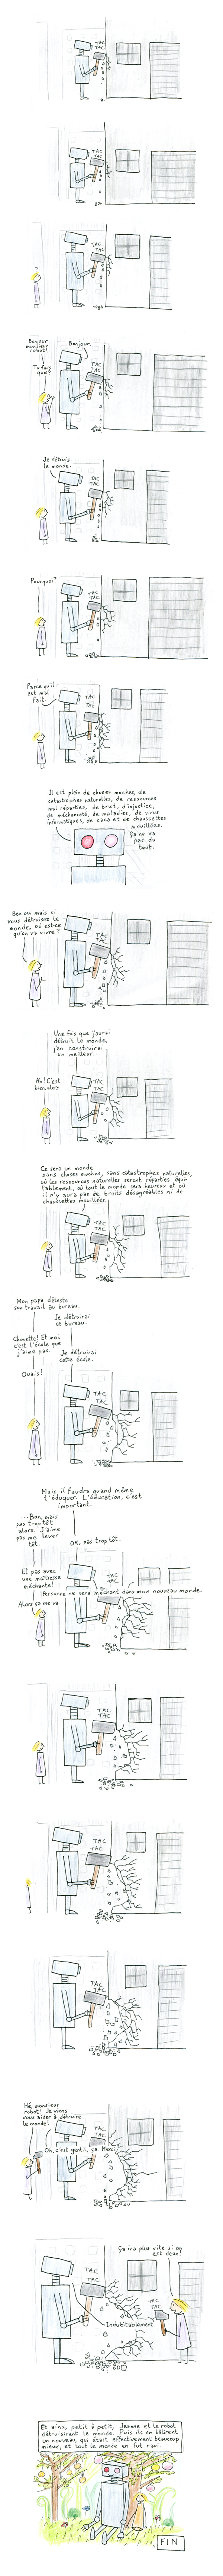 TAC
TAC
TAC
TAC
TAC
TAC
?
Bonjour
monsieur
robot!
Tu fais
quoi?
Bonjour.
TAC
TAC
Je détruis
le monde.
TAC
TAC
Pourquoi?
TAC
TAC
Parce qu'il
est mal
fait.
TAC
TAC
Il est plein de choses moches, de
catastrophes naturelles, de ressources
mal réparties, de bruit, d'injustice,
de méchanceté, de maladies, de virus
informatiques, de caca et de chaussettes
mouillées.
Ça ne va
pas du
tout.
Ben oui mais si
vous détruisez le
monde, où est-ce
qu'on va vivre?
TAC
TAC
Une fois que j'aurai
détruit le monde,
j'en construirai
un meilleur.
Ah! C'est
bien, alors.
TAC
TAC
Ce sera un monde
sans choses moches, sans catastrophes naturelles,
où les ressources naturelles seront réparties équi-
tablement, où tout le monde sera heureux et où
il n'y aura pas de bruits désagréables ni de
chaussettes mouillées.
TAC
TAC
Mon papa déteste
son travail au bureau.
Je détruirai
ce bureau.
Chouette! Et moi
c'est l'école que
j'aime pas.
Je détruirai
cette école.
Ouais!
TAC
TAC
Mais il faudra quand même
t'éduquer. L'éducation, c'est
important.
...Bon, mais
pas trop tôt
alors. J'aime
pas me lever
tôt.
OK, pas trop tôt.
Et pas avec
une maîtresse
méchante!
TAC
TAC
Personne ne sera méchant dans mon nouveau monde.
Alors ça me va.
TAC
TAC
TAC
TAC
TAC
TAC
Hé, monsieur
robot! Je viens
vous aider à détruire
le monde!
TAC
TAC
Oh, c'est gentil, ça. Merci.
Ça ira plus vite si on
est deux!
TAC
TAC
TAC
TAC
Indubitablement.
Et ainsi, petit à petit, Jeanne et le robot
détruisirent le monde. Puis ils en bâtirent
un nouveau, qui était effectivement beaucoup
mieux, et tout le monde en fut ravi.
FIN